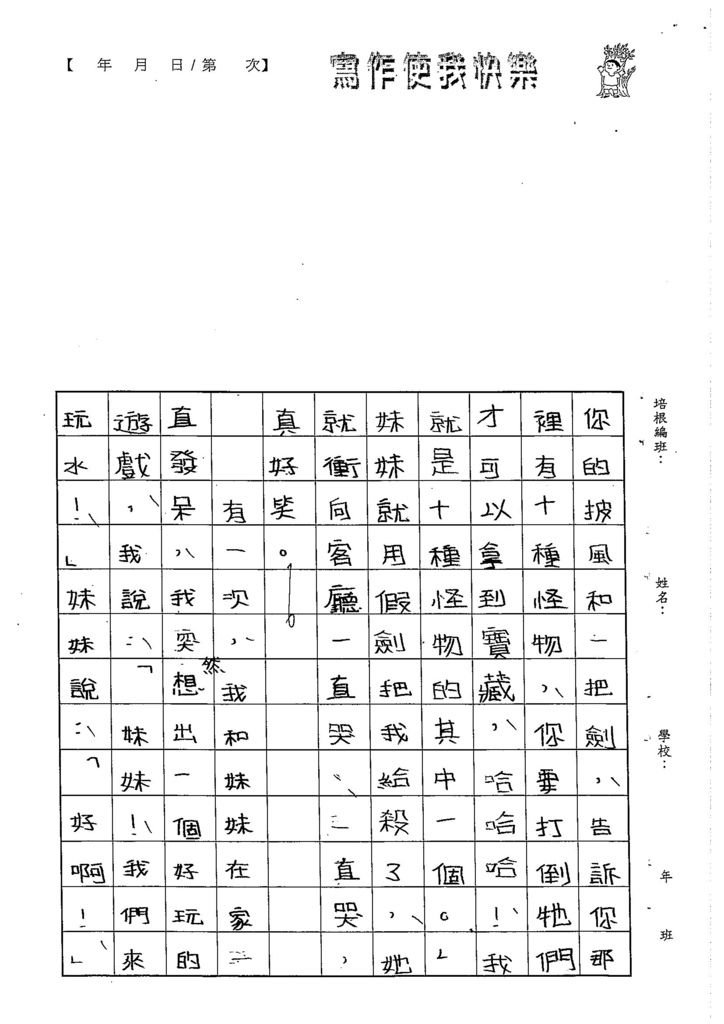 【 年 月 日/第 次】
寫作使我快樂
培根編班： 姓名： 學校： 年 班
你的披風和一把劍，告訴你那
裡有十種怪物，你要打倒牠們
才可以拿到寶藏，哈哈哈！我
就是十種怪物的其中一個。」
妹妹就用假劍把我給殺了，她
就衝向客廳一直哭、一直哭，
真好笑。
有一次，我和妹妹在家一
直發呆，我突然想出一個好玩的
遊戲，我說：「妹妹！我們來
玩水！」妹妹說：「好啊！」